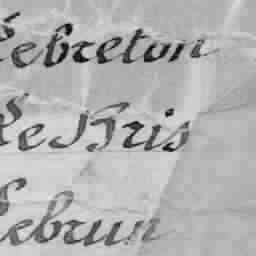 Lebreton
Le Kris
Lebrun